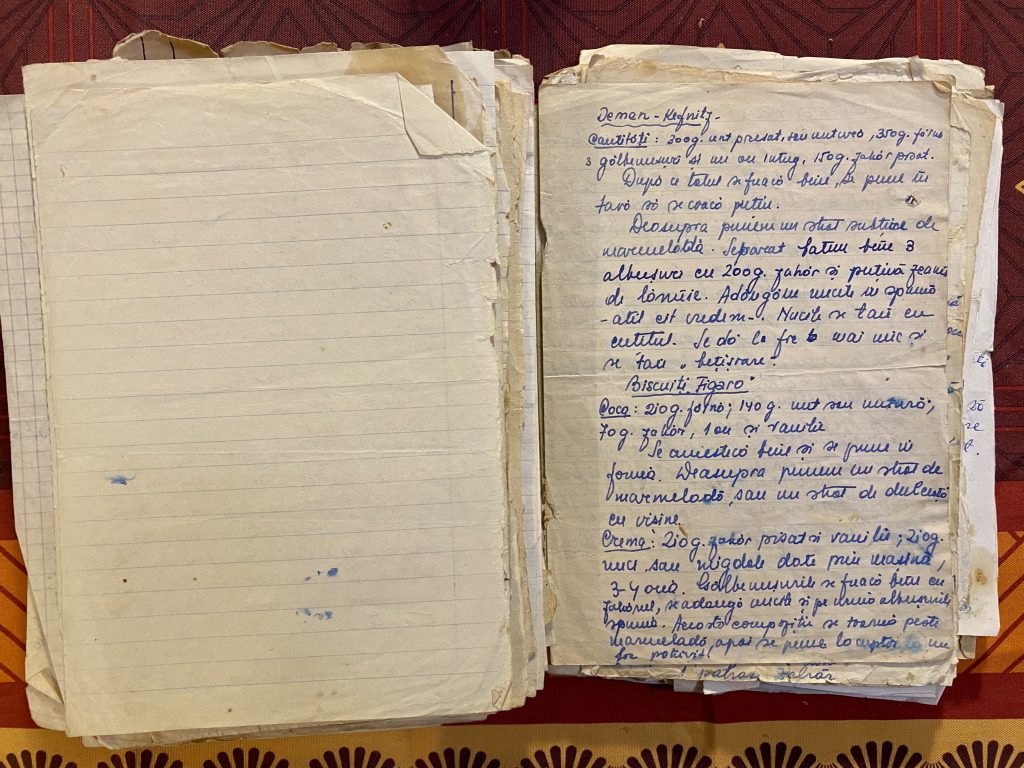 Demen - Kefnitz -
Cantități: 300g. unt presat, sau untură, 350g. făină
3 gălbenușuri și un ou întreg, 150g. zahăr pisat.
După ce totul se freacă bine, se pune în
tavă să se coacă puțin.
Deasupra punem un strat subțire de
marmeladă. Separat batem bine 3
albușuri cu 200g. zahăr și puțină zeamă
de lămâie. Adăugăm nucile la spumă
- atât cât vredem -. Nucile se taie cu
cuțitul. Se dă la foc mai mic și
se taie „bețișoare".
Biscuiți „Figaro"
Coca: 210g. făină; 140g. unt sau untură;
70g. zahăr, 1 ou și vanilie
Se amestică bine și se pune în
formă. Deasupra punem un strat de
marmeladă, sau un strat de dulceață
cu vișine.
Crema: 210g. zahăr pisat și vanilie; 210g.
nuci sau migdale date prin mașină,
3-4 ouă. Gălbenușurile se freacă bine cu
zahărul, se adaugă nucile și pe urmă albușurile
spumă. Această compoziție se toarnă peste
marmeladă, apoi se pune la cuptor la un
foc potrivit.
1 pahar zahăr